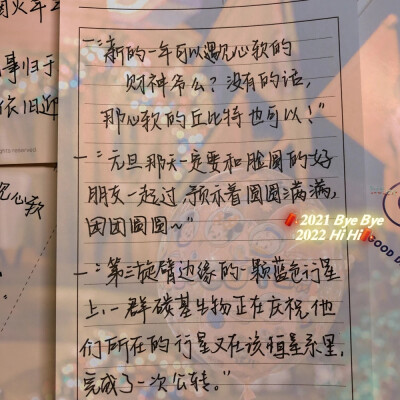 一:"新的一年可以遇见心软的
财神爷么?没有的话,
那心软的丘比特也可以!"
一:"元旦那天一定要和脸圆的好
朋友一起过,预示着圆圆满满,
团团圆圆~"
2021 Bye Bye
2022 Hi Hi
一:"第三旋臂边缘的一颗蓝色行星
上,一群碳基生物正在庆祝他
们所在的行星又在该恒星系里,
完成了一次公转。"
事归于
依旧迎
心软
GOOD D